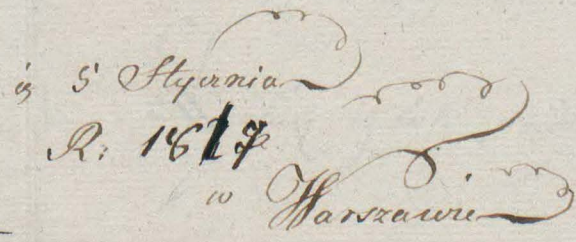 5 Stycznia
R: 1817
w Warszawie